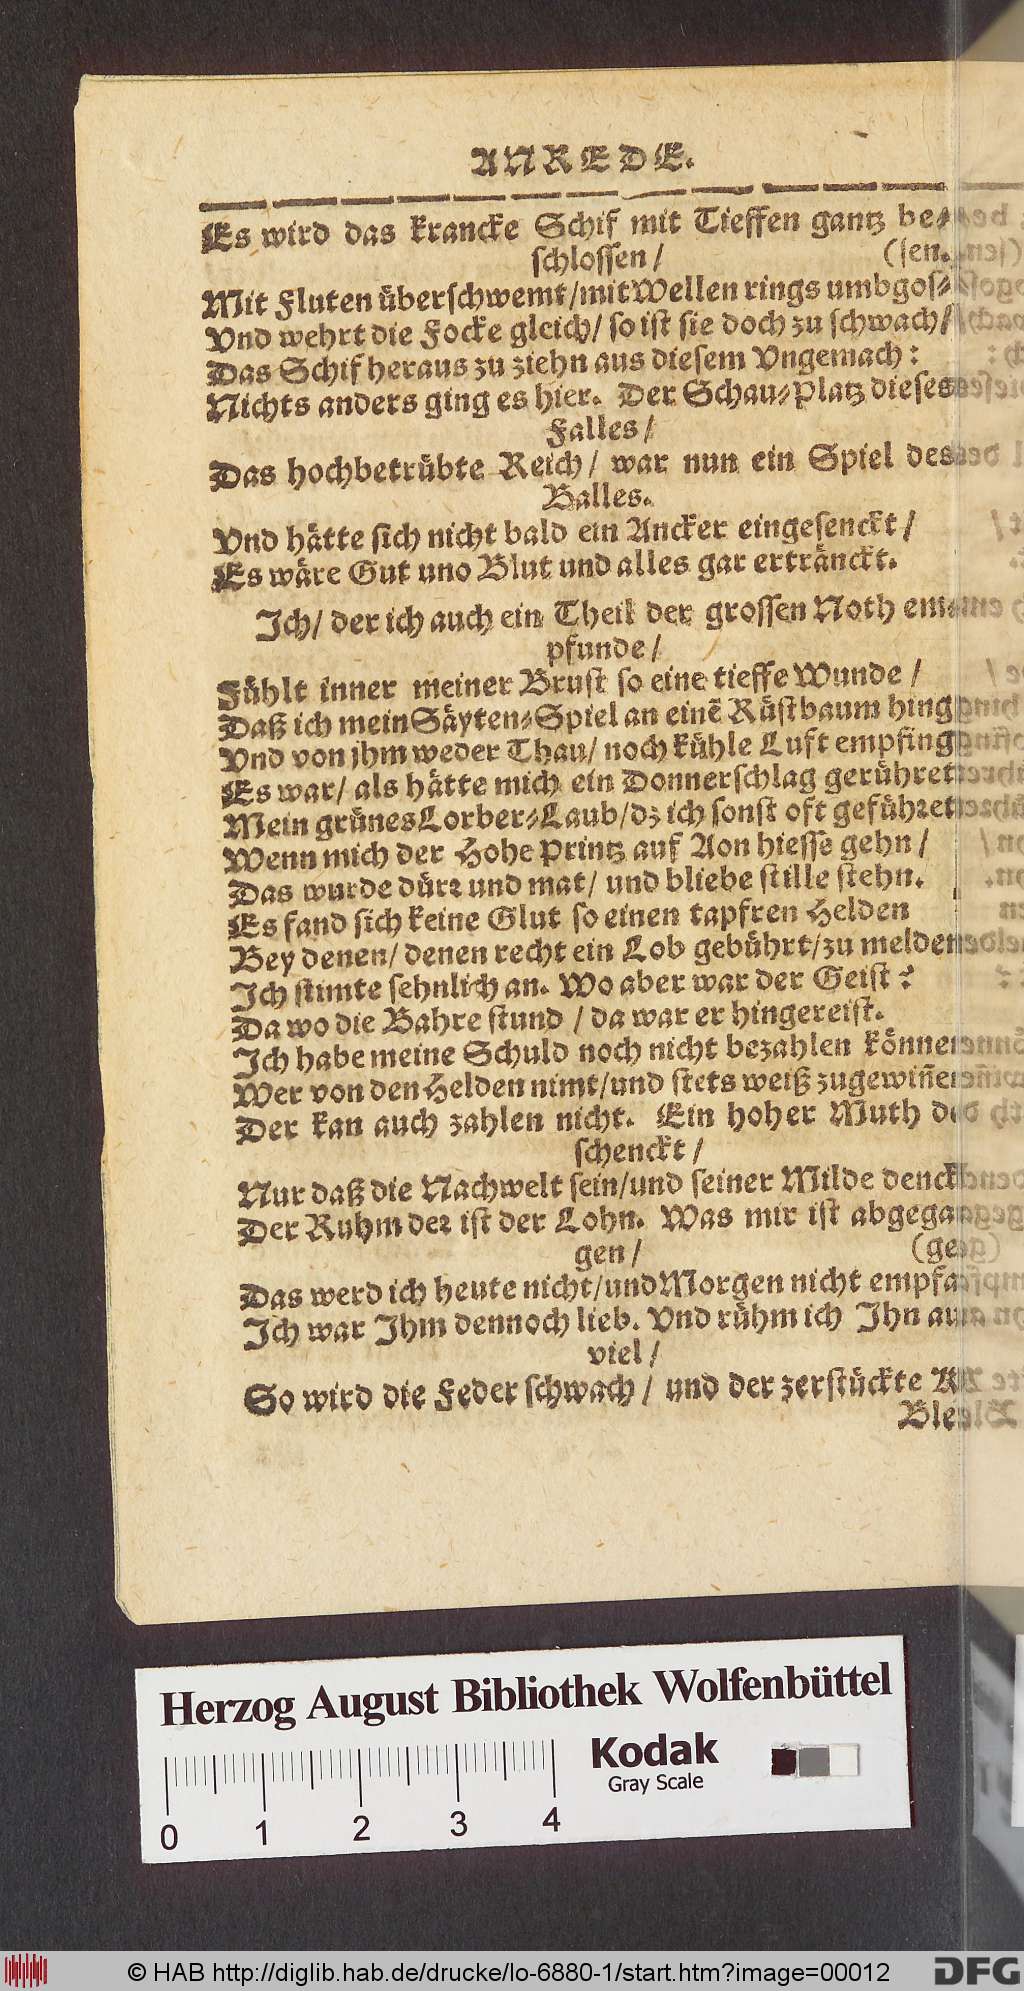 ANREDE.
Es wird das krancke Schif mit Tieffen gantz be-
schlossen / (sen.
Mit Fluten überschwemt/mit Wellen rings umbgos-
Vnd wehrt die Focke gleich/ so ist sie doch zu schwach/
Das Schif heraus zu ziehn aus diesem Vngemach:
Nichts anders ging es hier. Der Schau-Platz dieses
Falles /
Das hochbetrübte Reich/ war nun ein Spiel des
Balles.
Vnd hätte sich nicht bald ein Ancker eingesenckt /
Es wäre Gut uno Blut und alles gar ertränckt.
Ich/ der ich auch ein Theil der grossen Noth em-
pfunde /
Fühlt inner meiner Brust so eine tieffe Wunde /
Daß ich mein Säyten-Spiel an einē Rüstbaum hing
Vnd von jhm weder Thau/ noch kühle Luft empfing
Es war/ als hätte mich ein Donnerschlag gerühret
Mein grünes Lorber-Laub/dz ich sonst oft geführet
Wenn mich der Hohe Printz auf Aon hiesse gehn /
Das wurde dürr und mat/ und bliebe stille stehn.
Es fand sich keine Glut so einen tapfren Helden
Bey denen/ denen recht ein Lob gebührt/zu melden
Ich stimte sehnlich an. Wo aber war der Geist?
Da wo die Bahre stund / da war er hingereist.
Ich habe meine Schuld noch nicht bezahlen können
Wer von den Helden nimt/und stets weiß zugewiñen
Der kan auch zahlen nicht. Ein hoher Muth der
schenckt /
Nur daß die Nachwelt sein/und seiner Milde denckt
Der Ruhm der ist der Lohn. Was mir ist abgegan-
gen / (gen
Das werd ich heute nicht/und Morgen nicht empfan-
Ich war Ihm dennoch lieb. Vnd rühm ich Ihn
viel /
So wird die Feder schwach / und der zerstückte
Herzog August Bibliothek Wolfenbüttel
Kodak
Gray Scale
0 1 2 3 4
© HAB http://diglib.hab.de/drucke/lo-6880-1/start.htm?image=00012
DFG